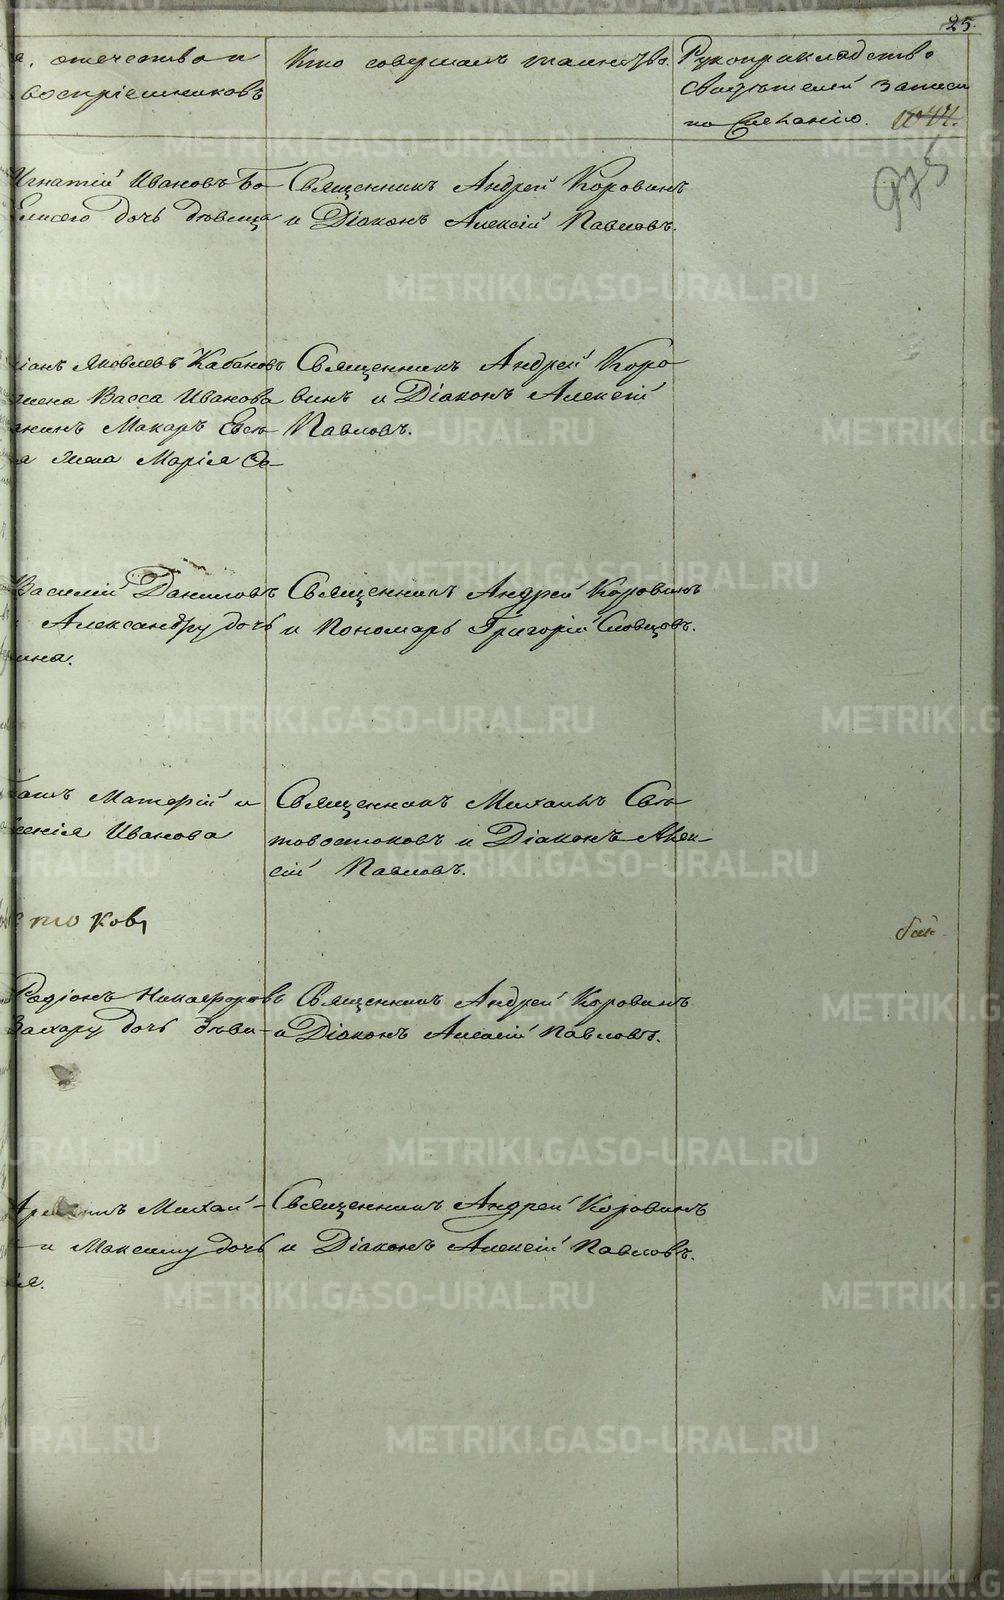 25.
отечество и
воспріемниковъ
Кто совершалъ таинство.
Рукоприкладство
свидѣтелей записи
по желанію.
975
Игнатій Ивановъ Бо-
Елисея дочь дѣвица
Священникъ Андрей Коровинъ
и Діаконъ Алексій Павловъ.
Яковлевъ Кабановъ
жена Васса Иванова
Макаръ Евсе
жена Марія
Священникъ Андрей Коро
винъ и Діаконъ Алексій
Павловъ.
Василій Даниловъ
Александру дочь
Священникъ Андрей Коровинъ
и Пономарь Григорій Словцовъ.
Иванова
Священникъ Михаилъ Свѣ
товостоковъ и Діаконъ Алек-
сій Павловъ.
токовъ
Родіонъ Никифоровъ
Захару дочь дѣви-
Священникъ Андрей Коровинъ
и Діаконъ Алексій Павловъ.
Михай-
и Максиму дочь
Священникъ Андрей Коровинъ
и Діаконъ Алексій Павловъ.
METRIKI.GASO-URAL.RU